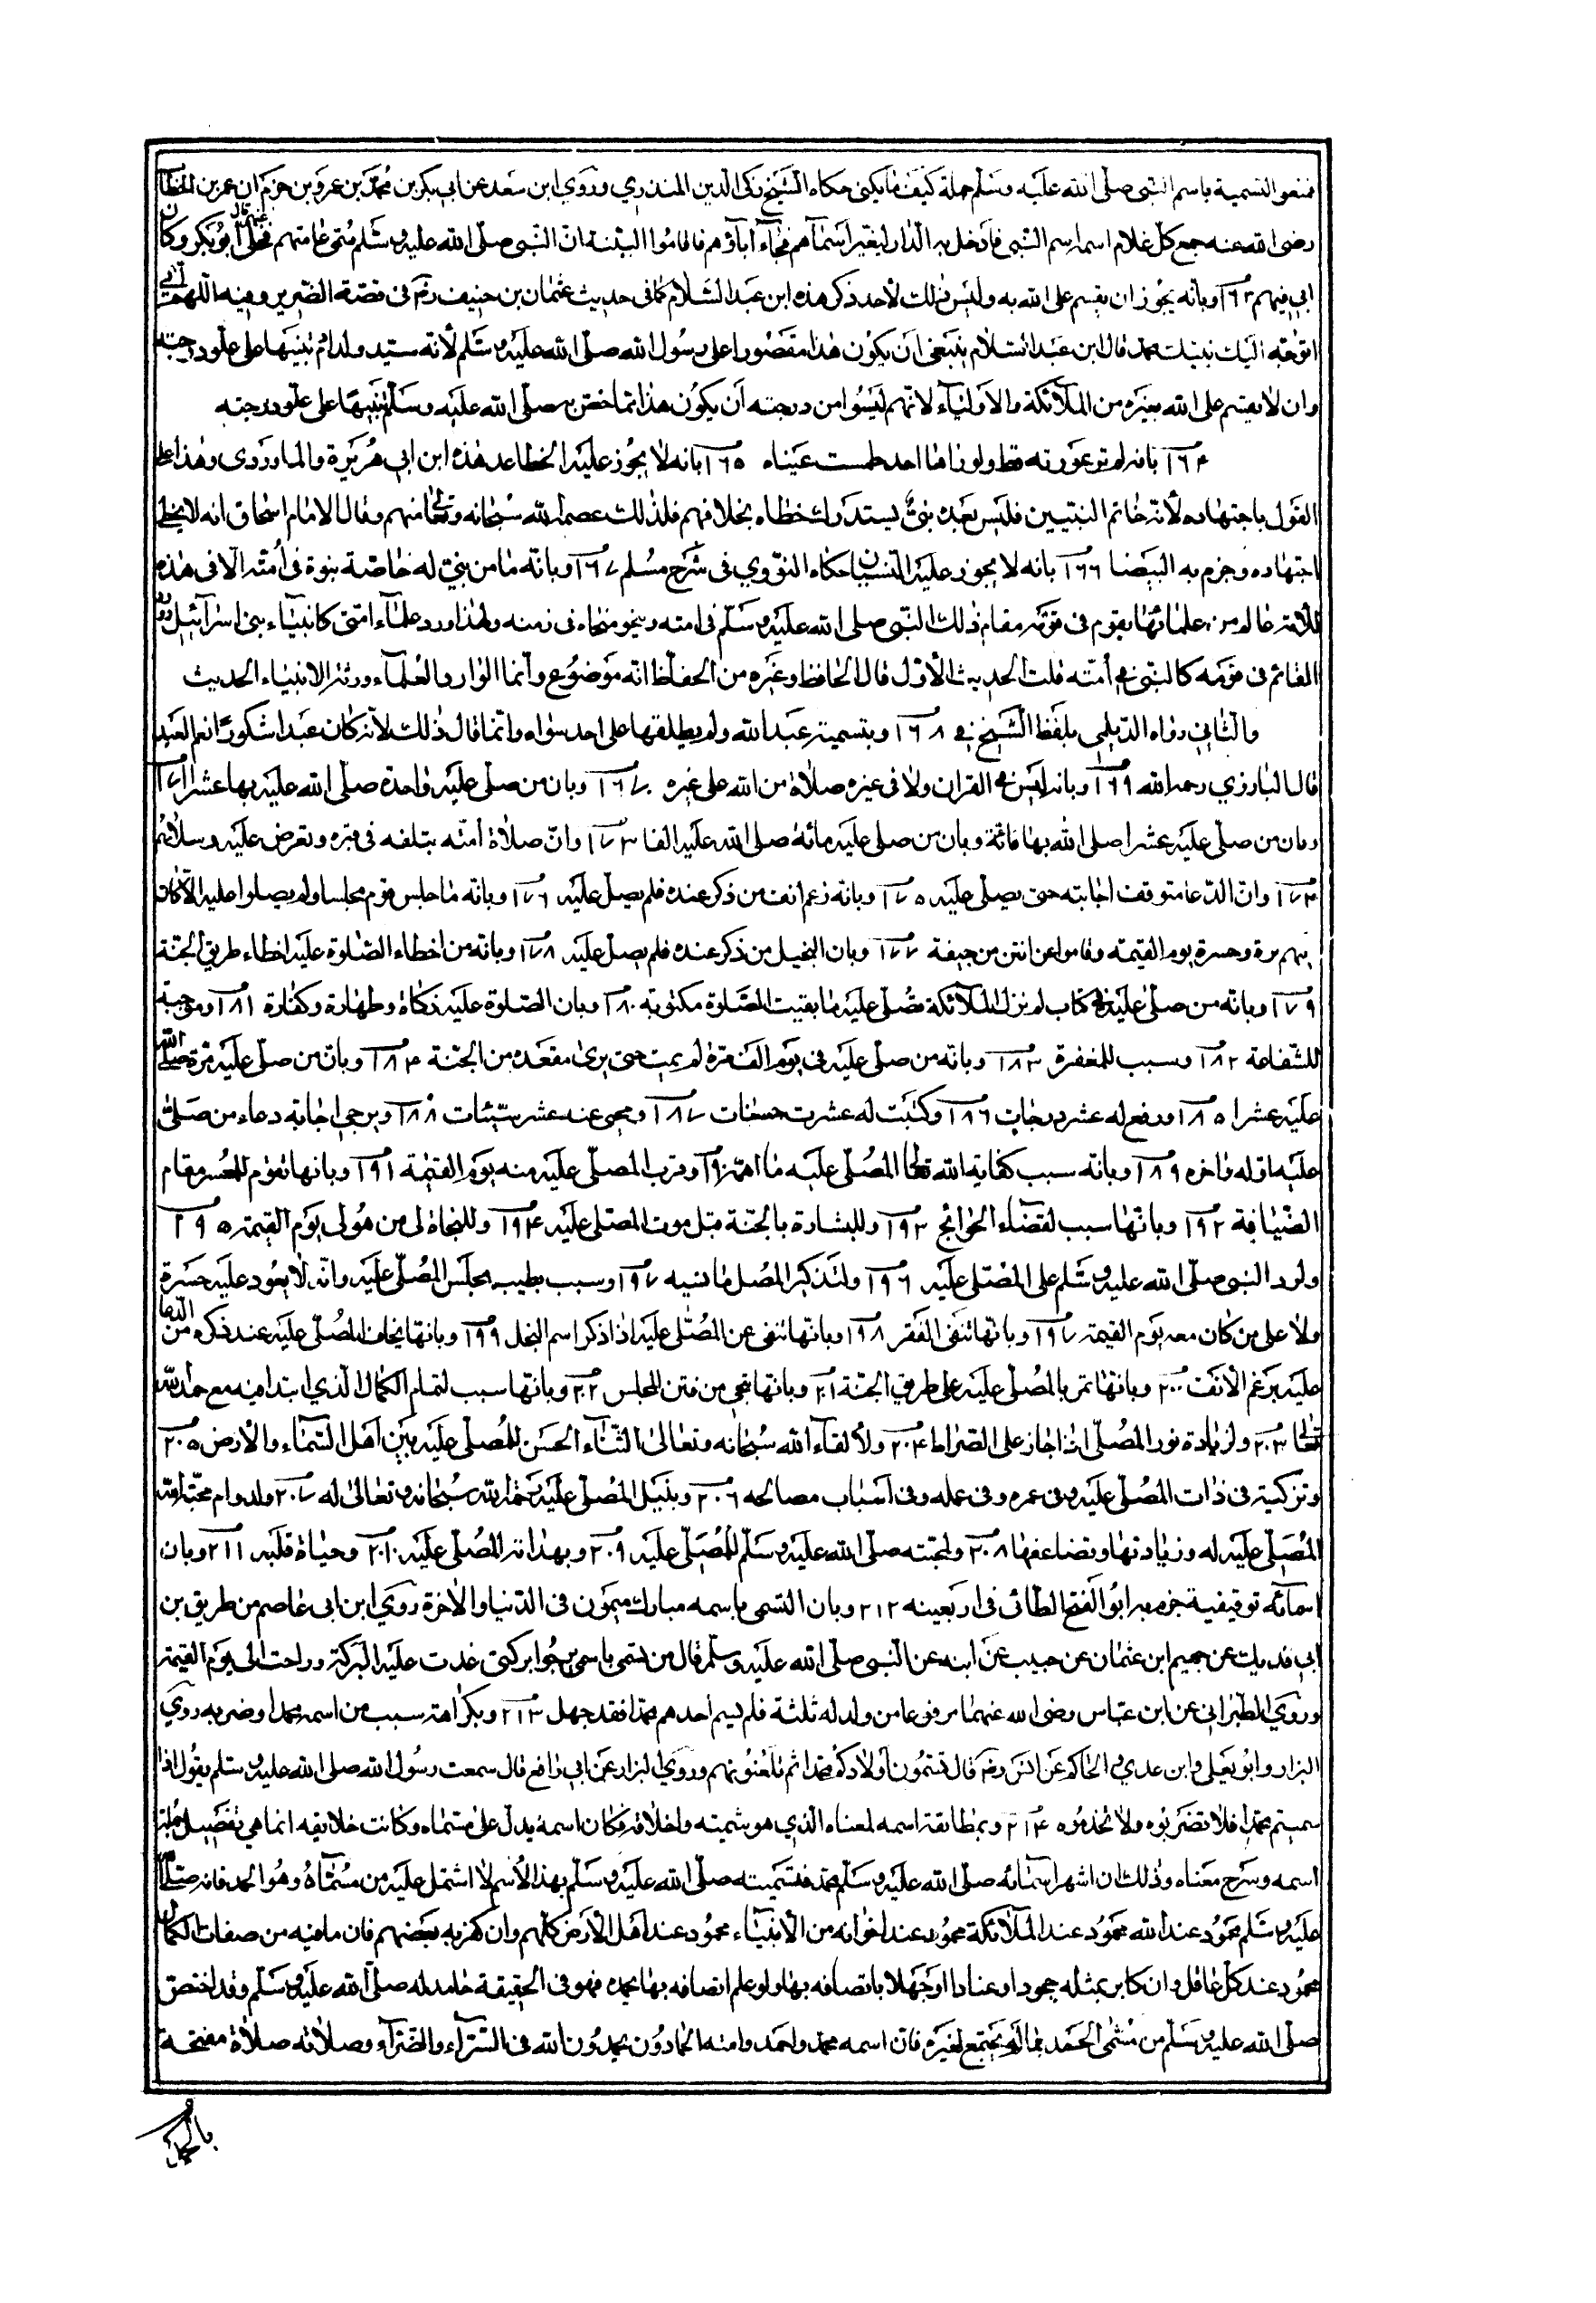 فمنعوا التسمية باسم النبى صلى الله عليه وسلم جملة كيف ما يكنى حكاه الشيخ زكى الدين المنذري وروي ابن سعد عن ابي بكر بن محمد بن عمرو بن حزم ان عمر بن الخطاب
رضى الله عنه جمع كل غلام اسمه اسم النبى فأدخلهم الدار ليغير اسماهم فجاء آباؤهم فاقاموا البينة ان النبى صلى الله عليه وسلم سمى عامتهم فخلى عنهم قال ابو بكر وكان
ابي فيهم ١٦٣ وبأنه يجوز ان يقسم على الله به وليس ذلك لأحد ذكر هذه ابن عبد السلام كما فى حديث عثمان بن حنيف رضي فى قصة الضرير وفيه اللهم اني
اتوجه اليك بنبيك محمد قال ابن عبد السلام ينبغى ان يكون هذا مقصورا على رسول الله صلى الله عليه وسلم لأنه سيد ولد ادم تنبيها على علو درجته
وان لا يقسم على الله بغيره من الملائكة والأولياء لانهم ليسوا من درجته أن يكون هذا مما خص به صلى الله عليه وسلم تنبيها على علو درجته
١٦٤ بانه لم تر عورته قط ولو راها احد طمست عيناه ١٦٥ بانه لا يجوز عليه الخطا عد هذه ابن ابي هريرة والماوردى وهذا على
القول باجتهاده لأنه خاتم النبيين فليس بعده نبى يستدرك خطاه بخلافهم فلذلك عصمه الله سبحانه وتعالى منهم وقال الامام اسحاق انه لا يخطى
اجتهاده وجزم به البيضا ١٦٦ بانه لا يجوز عليه النسيان حكاه النووي فى شرح مسلم ١٦٧ وبانه ما من نبي له خاصة نبوة فى أمته الا فى هذه
الأمة عالم من علمائها يقوم فى قومه مقام ذلك النبى صلى الله عليه وسلم فى امته وينحو منحاه فى زمنه ولهذا ورد علماء امتى كانبياء بنى اسرائيل وورد
القائم فى قومه كالنبى فى أمته قلت الحديث الأول قال الحافظ وغيره من الحفاظ انه موضوع وانما الوارد العلماء ورثة الانبياء الحديث
والثاني رواه الديلمي بلفظ الشيخ فى ١٦٨ وبتسميته عبد الله ولم يطلقها على احد سواه وانما قال ذلك لأنه كان عبدا شكورا نعم العبد
قال البارزي رحمه الله ١٦٩ وبانه ليس فى القران ولا فى غيره صلاة من الله على غيره ١٦٧٠ وبان من صلى عليه واحدة صلى الله عليه بها عشرا ١٧١
وبان من صلى عليه عشرا صلى الله بها مائة وبان من صلى عليه مائة صلى الله عليه الفا ١٧٣ وان صلاة امته تبلغه فى قبره وتعرض عليه وسلامهم
١٧٤ وان الدعا متوقف اجابته حتى يصلى عليه ١٧٥ وبانه رغم انف من ذكر عنده فلم يصل عليه ١٧٦ وبانه ما جلس قوم مجلسا ولم يصلوا عليه الا كان
عليهم ترة وحسرة يوم القيمة وقاموا عن انتن من جيفة ١٧٧ وبان البخيل من ذكر عنده فلم يصل عليه ١٧٨ وبانه من اخطاء الصلوة عليه اخطاء طريق الجنة
١٧٩ وبانه من صلى عليه فى كتاب لم تزل الملائكة تصلى عليه ما بقيت الصلوة مكتوبة ١٨٠ وبان الصلوة عليه زكاة وطهارة وكفارة ١٨١ وموجبة
للشفاعة ١٨٢ وسبب للمغفرة ١٨٣ وبانه من صلى عليه فى يوم الف مرة لم يمت حتى يرى مقعده من الجنة ١٨٤ وبان من صلى عليه مرة صلى الله
عليه عشرا ١٨٥ ورفع له عشر درجات ١٨٦ وكتبت له عشرت حسنات ١٨٧ ومحى عنه عشر سيئات ١٨٨ ويرجى اجابة دعاء من صلى
عليه اوله واخره ١٨٩ وبانه سبب كفاية الله تعالى المصلى عليه ما اهمه ١٩٠ وقرب المصلى عليه منه يوم القيمة ١٩١ وبانها تقوم للمعسر مقام
الضيافة ١٩٢ وبانها سبب لقضاء الحوائج ١٩٣ وللبشارة بالجنة قبل موت المصلى عليه ١٩٤ وللنجاة لى من هول يوم القيمة ١٩٥
ولرد النبى صلى الله عليه وسلم على المصلى عليه ١٩٦ ولتذكير المصل ما نسيه ١٩٧ وسبب بطيب مجلس المصلى عليه وانه لا يعود عليه حسرة
ولا على من كان معه يوم القيمة ١٩٧ وبانها تنفى الفقر ١٩٨ وبانها تنفى عن المصلى عليه اذا ذكر اسم البخل ١٩٩ وبانها يخاف المصلى عليه عند ذكره من الدعا
عليه برغم الأنف ٢٠٠ وبانها تمر بالمصلى عليه على طريق الجنة ٢٠١ وبانها تنجى من فتن المجلس ٢٠٢ وبانها سبب لتمام الكمال الذي ابتدا فيه مع حمد الله
تعالى ٢٠٣ ولزيادة نور المصلى اذا جاز على الصراط ٢٠٤ ولألقاء الله سبحانه وتعالى الثناء الحسن للمصلى عليه بين اهل السماء والأرض ٢٠٥
وتزكية فى ذات المصلى عليه وفى عمره وفى عمله وفى اسباب مصالحه ٢٠٦ وبنيل المصلى عليه رحمة الله سبحانه وتعالى له ٢٠٧ ولدوام محبة الله
المصلى عليه له وزيادتها وتضاعفها ٢٠٨ ولمحبته صلى الله عليه وسلم للمصلى عليه ٢٠٩ وبهدايته للمصلى عليه ٢٠١٠ وحياة قلبه ٢١١ وبان
اسمائه توقيفية جزم به ابو الفتح الطائى فى اربعينه ٢١٢ وبان التسمى باسمه مبارك ميمون فى الدنيا والاخرة روي ابن ابى عاصم من طريق بن
ابي فديك عن جهيم ابن عثمان عن حبيب عن ابنه عن النبى صلى الله عليه وسلم قال من تسمى باسمى يرجوا بركتى غدت عليه البركة وراحت الى يوم القيمة
وروي الطبرانى عن ابن عباس رضى الله عنهما مرفوعا من ولد له ثلثة فلم يسم احدهم محمدا فقد جهل ٢١٣ وبكراهة سبب من اسمه محمدا وضربه روي
البزار وابو يعلى وابن عدي والحاكم عن انس رضه قال تسمون أولادكم محمدا ثم تلعنونهم وروي البزار عن ابي رافع قال سمعت رسول الله صلى الله عليه وسلم يقول اذا
سميتم محمدا فلا تضربوه ولا تخذموه ٢١٤ وبمطابقة اسمه لمعناه الذي هو شيمته واخلاقه فكان اسمه يدل على مسماه وكانت خلائقه انما هي تفصيل جملة
اسمه وشرح معناه وذلك ان اشهر اسمائه صلى الله عليه وسلم محمد فتسميته صلى الله عليه وسلم بهذا الأسم لا اشتمل عليه من مسماه وهو الحمد فانه صلى الله
عليه وسلم محمود عند الله محمود عند الملائكة محمود عند اخوانه من الأنبياء محمود عند اهل الأرض كلهم وان كفر به بعضهم فان ما فيه من صفات الكمال
محمود عند كل عاقل وان كابر بمثله جحودا وعنادا او جهلا باتصافه بها ولو علم اتصافه بها يحمده فهو فى الحقيقة حامد له صلى الله عليه وسلم وقد اختص
صلى الله عليه وسلم من مسمى الحمد بما لم يجتمع لغيره فان اسمه محمد واحمد وامته الحمادون يحمدون الله فى السراء والضراء وصلاته صلاة مفتتحة
بالحمد